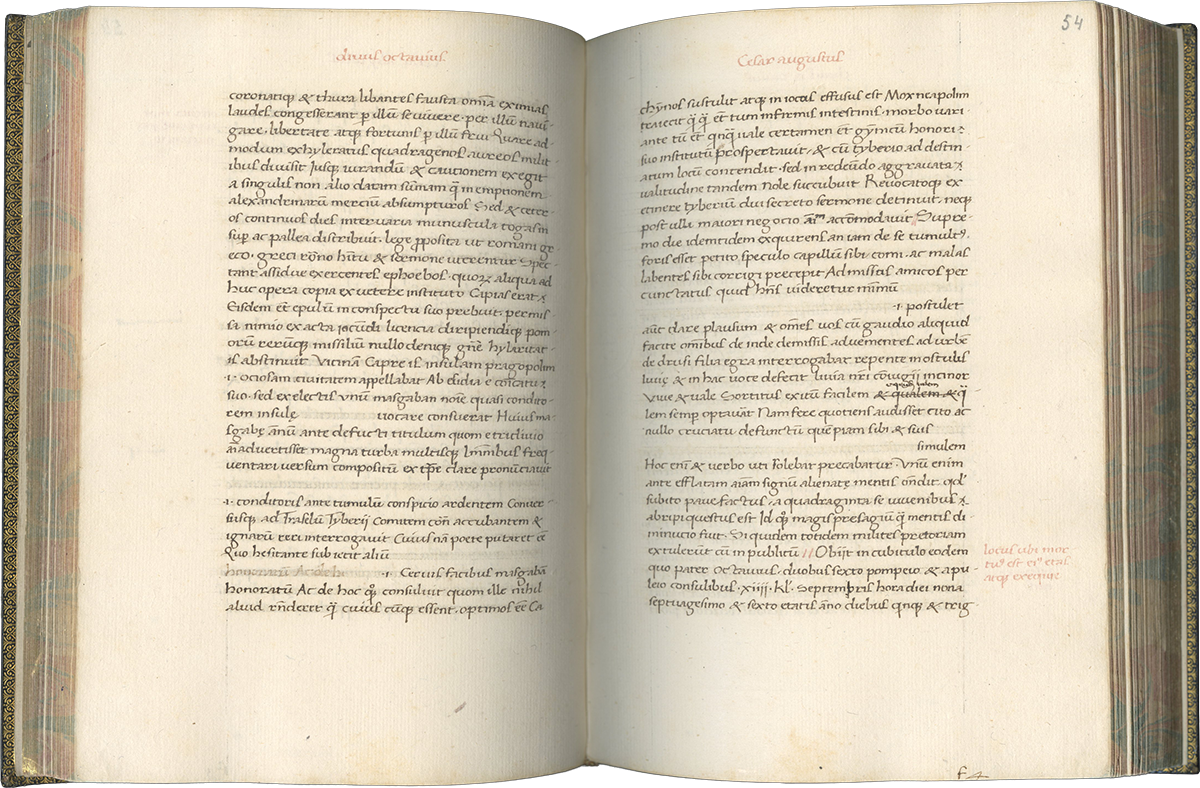 diuus octauius
coronatiq; & thura libantes fausta omīa eximias
laudes congesserant p̱ illū se viuere · per illū naui-
gare · libertate atq; fortunis p̱ illū frui Quare ad-
modum exhyleratus quadragenos aureos milit
ibus diuisit Jusq; iurandū & cautionem exegit
a singulis non alio datam sūmam q̄ in emptionem
alexandrinarū merciū absumpturos Sed & ceter-
os continuos dies inter varia munuscula togas in
sup̱ ac pallea distribuit · lege p̱posita ut romani gr
eco · greci rōno hītu & sermone uterentur Spec-
tant assidue exercentes ephoebos · quoꝝ aliqua ad
huc opera copia ex uetere instituto Capias erat ⁊
Eisdem eē epulū in conspectu suo prebuit permis
sa nimio exacta iocūdi licencia diripiendiq; pom-
orū rerūq; missiliū nullo deniq; gn̄e hylaritat-
is abstinuit Vicinā Capreis insulam pragopolim
·1· ociosam ciuitatem appellabat Ab elidia e cōicatu ⁊
suo · sed ex electis vnū masgaban noīe quasi condito-
rem insule uocare consueuerat Huius ma-
sgabę annū ante defuncti titulum quom e triclinio
aīaduertisset magna turba multisq; lmīnibus freq-
uentari versum compositū ex tp̄re clare pronūciauit
·1· conditoris ante tumulū conspicio ardentem Conuer-
susq; ad Traslū Tyberij Comitem cōn accubantem &
ignarū rei interrogauit Cuius nā poete putaret eē
Quo hesitante subiecit aliū
honoratū Ac de hi ·1· Ceruis facibus masgabā
honoratū Ac de hoc q̄ꝫ consuluit quom ille nihil
aliud rn̄deret q̄ cuius cūq; essent · optimos eē Ca
54
Cesar augustus
chynos sustulit atq; in iocos effusus est Mox neapolim
traiecit q̄ q̄ et tum infirmis intestinis · morbo vari-
ante tū et qinq uale certamen et gȳnicū honori ⁊
suo institutū prospectauit · & cū tyberio ad destin-
atum locū contendit · sed in redeūdo aggrauata ⁊
ualitudine tandem nole succubuit Reuocatoq; ex
itinere tyberium diu secreto sermone detinuit neq;
post ulli maiori negocio aīm accomodauit // Supre-
mo die identidem exquirens an iam de se tumultꝰ,
foris esset petito speculo capillum sibi comi · ac malas
labentes sibi corrigi precepit Admissis amicos per
cunctatus quid hn̄s uideretur mimū
·1· postulet
aūt clare plausum & omēs vos cū gaudio aliquid
facite omibus de inde demissis aduementes ad urbē
de drusi filia egra interrogabat repente in osculis
liuię & in hac uoce defecit liuia nr̄i cōiugij incinor
Viue & vale Sortitus exitū facilem & qualem & q̄
lem semp̱ optauāt Nam fere quotiens audisset cito ac
nullo cruciatu defunctū quempiam sibi & suis
simulem
Hoc enī & verbo uti solebat precabatur · Vnū enim
ante efflatam aīam signū alienatę mentis ōndit · qd
subito pauefactus · a quadraginta se iuuenibus ⁊
abripi questus est Id q̄ꝫ magis presagiū q̄ mentis di-
minucio fuit · Si quidem totidem milites pretoriam
extulerūt cū in publicū // Obijt in cubitulo eodem
quo pater octauius · duobus sexto pompeio & apu-
leio consulibus · xiiii · kl̄ · septembris hora diei nona
septuagesimo & sexto etatis āno diebus qinq; & trig
locus ubi mor
tuꝰ est eiꝰ etas
atq; exequie